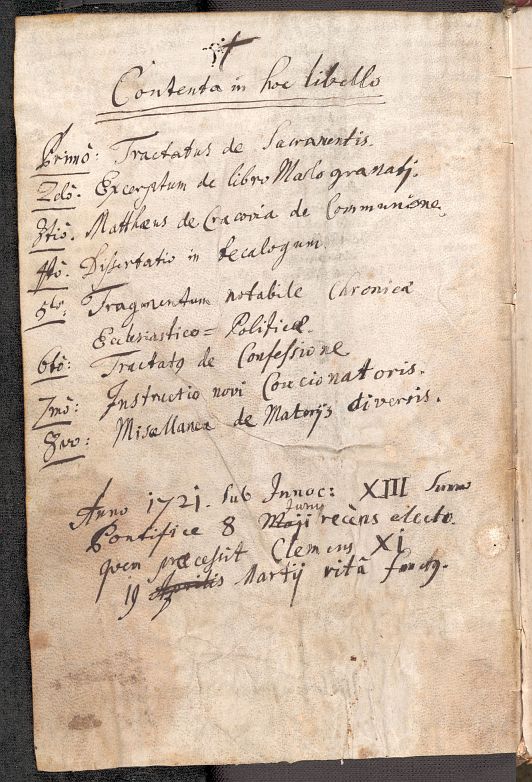 Contenta in hoc libello
Primò: Tractatus de Sacramentis.
2dò. Excerptum de libro Malogranatj.
3tiò. Matthæus de Cracoviâ de Communione.
4tò. Dissertatio in Decalogum.
5to: Fragmentum notabile Chronicæ
Ecclesiastico= Politicæ.
6tò: Tractatq de Confessione
7mò: Instructio novi Concionatoris.
8vo: Miscellanea de Materijs diversis.
Anno 1721. sub Innoc: XIII Summo
Junij
Pontifice 8 Maji recèns electo.
quem præcessit Clemens XI
19 Aprilis Martij vitâ functq.